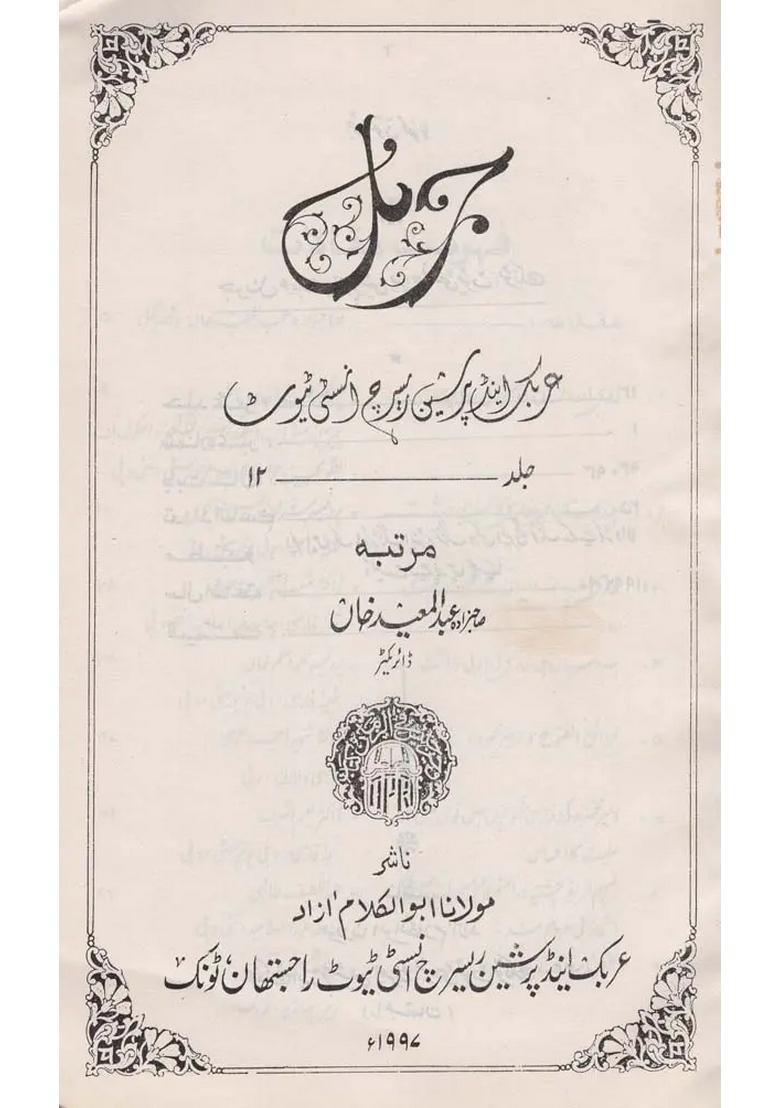 جرنل
عربک اینڈ پرشین ریسرچ انسٹی ٹیوٹ
جلد ——— ۱۲
مرتبہ
صاحبزادہ عبدالمعید خان
ڈائریکٹر
ناشر
مولانا ابوالکلام آزاد
عربک اینڈ پرشین ریسرچ انسٹی ٹیوٹ راجستھان، ٹونک
۱۹۹۷ء